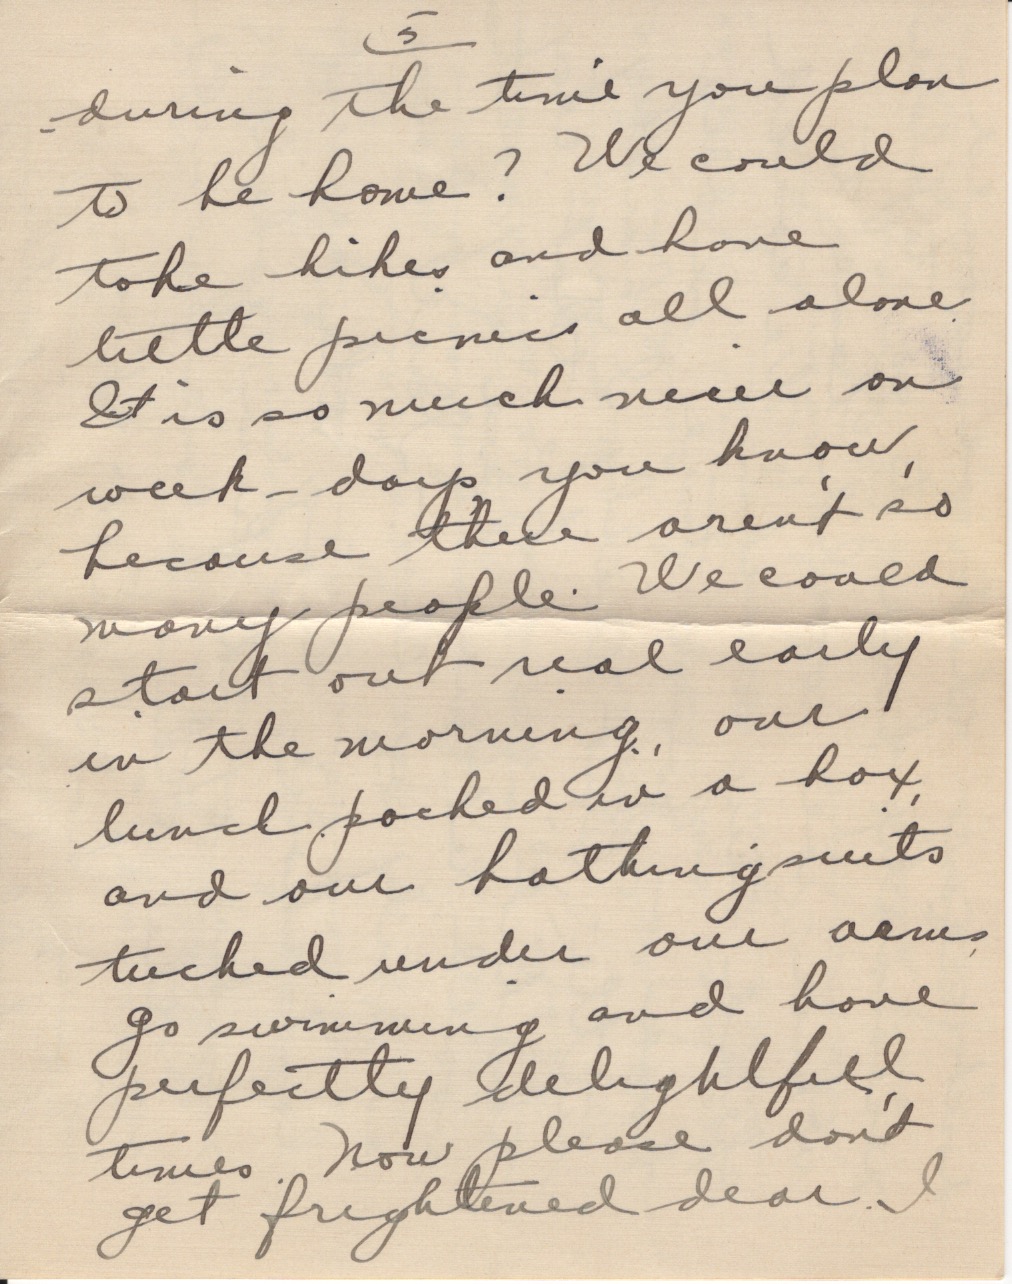 5
during the time you plan
to be home? We could
take hikes and have
little picnics all alone.
It is so much nicer on
week-days, you know,
because there aren't so
many people. We could
start out real early
in the morning, our
lunch packed in a box,
and our bathingsuits
tucked under our arms,
go swimming and have
perfectly delightful
times. Now please don't
get frightened dear. I